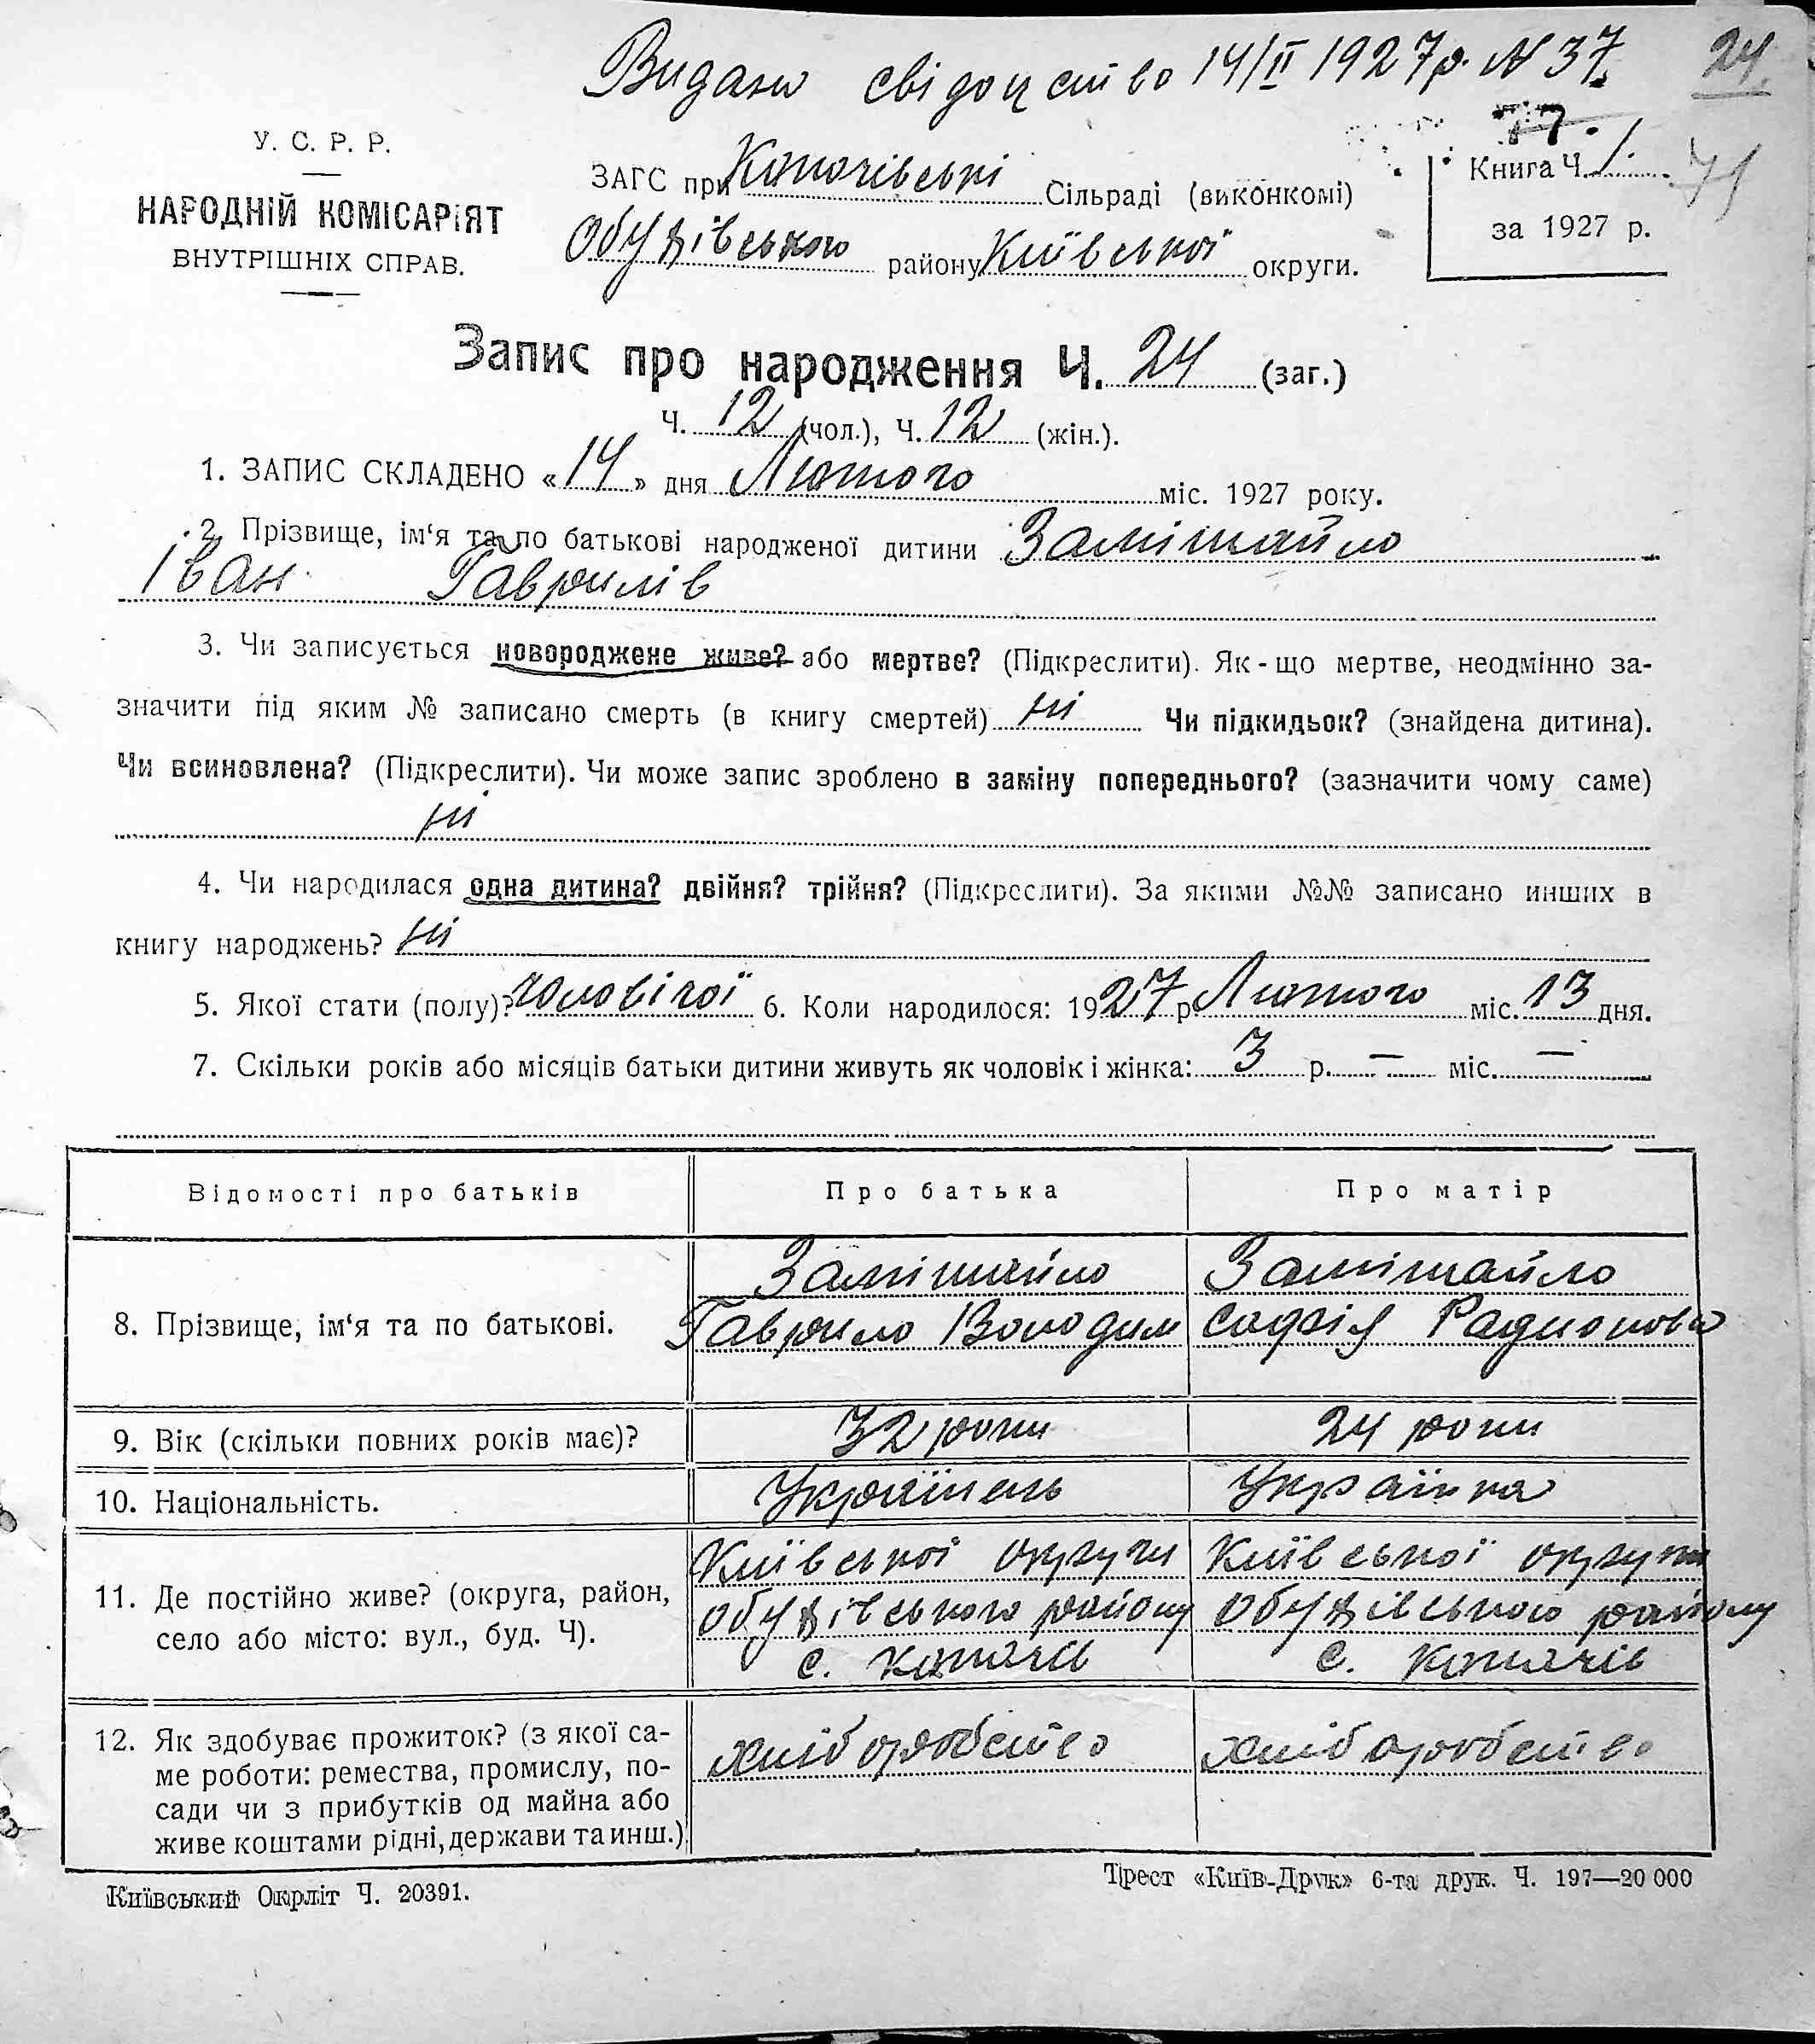 Видано свідоцтво 14/II 1927р. № 37.
24.
У. С. Р. Р.
НАРОДНІЙ КОМІСАРІЯТ
ВНУТРІШНІХ СПРАВ.
ЗАГС при Копачівські Сільраді (виконкомі)
Обухівського району Київської округи.
Книга Ч. 1.
71
за 1927 р.
Запис про народження Ч. 24 (заг.)
Ч. 12 (чол.), Ч. 12 (жін.).
1. ЗАПИС СКЛАДЕНО «14» дня Лютого міс. 1927 року.
2. Прізвище, ім‘я та по батькові народженої дитини Замішайло
Іван Гаврилів
3. Чи записується новороджене живе? або мертве? (Підкреслити). Як-що мертве, неодмінно за-
значити під яким № записано смерть (в книгу смертей) ні Чи підкидьок? (знайдена дитина).
Чи всиновлена? (Підкреслити). Чи може запис зроблено в заміну попереднього? (зазначити чому саме)
ні
4. Чи народилася одна дитина? двійня? трійня? (Підкреслити). За якими №№ записано инших в
книгу народжень? ні
5. Якої стати (полу)? чоловічої 6. Коли народилося: 1927 р. Лютого міс. 13 дня.
7. Скільки років або місяців батьки дитини живуть як чоловік і жінка: 3 р. — міс. —
Відомості про батьків Про батька Про матір
8. Прізвище, ім‘я та по батькові.
Замішайло
Гаврило Володим
Замішайло
Софія Радионова
9. Вік (скільки повних років має)? 32 роки 24 роки
10. Національність. Українець Українка
11. Де постійно живе? (округа, район,
село або місто: вул., буд. Ч).
Київської округи
Обухівського району
с. Копачів
Київської округи
Обухівського району
с. Копачів
12. Як здобуває прожиток? (з якої са-
ме роботи: ремества, промислу, по-
сади чи з прибутків од майна або
живе коштами рідні, держави та инш.)
хліборобство
хліборобство
Київський Окрліт Ч. 20391.
Трест «Київ-Друк» 6-та друк. Ч. 197—20 000